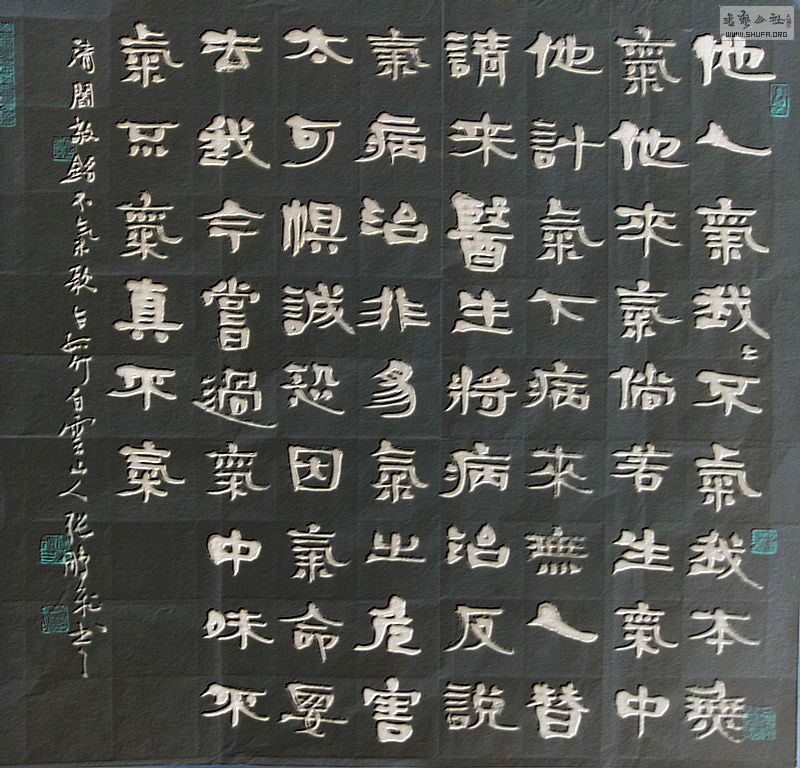 他人氣我々不氣我本無
氣他來氣倘若生氣中
他計氣下病來無人替
請來醫生將病治反說
氣病治非易氣之危害
太可懼誠恐因氣命要
去我今嘗過氣中味不
氣不氣真不氣
清閻敬銘不氣歌 白雲山人張鵬 書
書藝公社
WWW.SHUFA.ORG